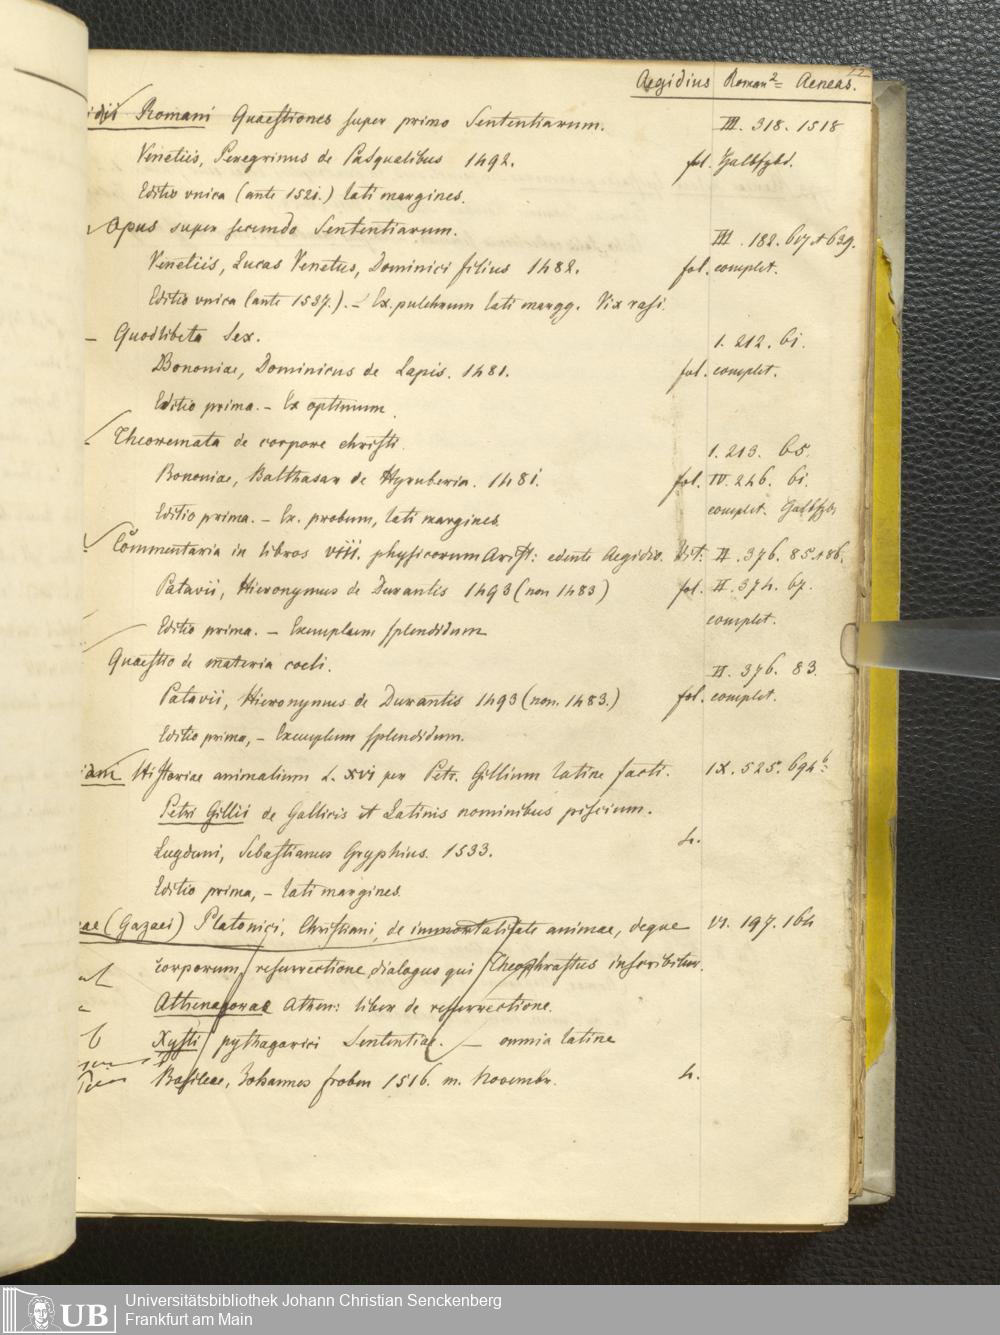 Aegidius Roman²= Aeneas.
Romani Quaestiones super primo Sententiarum. III. 318. 1518
Venetiis, Peregrinus de Pasqualibus 1492. fol. Halbfzbd.
Editio unica (ante 1521.) lati margines.
Opus super secundo Sententiarum. III. 182. 617 + 639.
Venetiis, Lucas Venetus, Dominici filius 1482. fol. complet.
Editio unica (ante 1537.). – Ex. pulchrum lati margg. Vix rasi.
– Quodlibeta Sex. 1. 212. 61.
Bononiae, Dominicus de Lapis. 1481. fol. complet.
Editio prima. – Ex optimum.
Theoremata de corpore christi. 1. 213. 65.
Bononiae, Balthasar de Hyruberia. 1481. fol. IV. 246. 61.
Editio prima. – Ex. probum, lati margines. complet. Halbfzb.
Commentaria in libros VIII. physicorum Arist: edente Aegidio. II. 376. 85+86.
Patavii, Hieronymus de Durantis 1493 (non 1483) fol. II. 374. 67.
Editio prima. – Exemplum splendidum complet.
Quaestio de materia coeli. II. 376. 83.
Patavii, Hieronymus de Durantis 1493 (non. 1483.) fol. complet.
Editio prima, – Exemplum splendidum.
Historiae animalium L. XVI per Petr. Gillium latine facti. IX. 525. 694
Petri Gillii de Gallicis et Latinis nominibus piscium.
Lugduni, Sebastianus Gryphius. 1533. 4.
Editio prima, – lati margines.
(Gazaei) Platonici, Christiani, de immortalitate animae, deque VI. 197. 164
corporum resurrectione, dialogus qui Theophrastus inscribitur.
Athenagorae Athen: liber de resurrectione.
Xysti pythagorici Sententiae. – omnia latine
Basileae, Johannes Froben 1516. m. Novembr. 4.
UB
Universitätsbibliothek Johann Christian Senckenberg
Frankfurt am Main